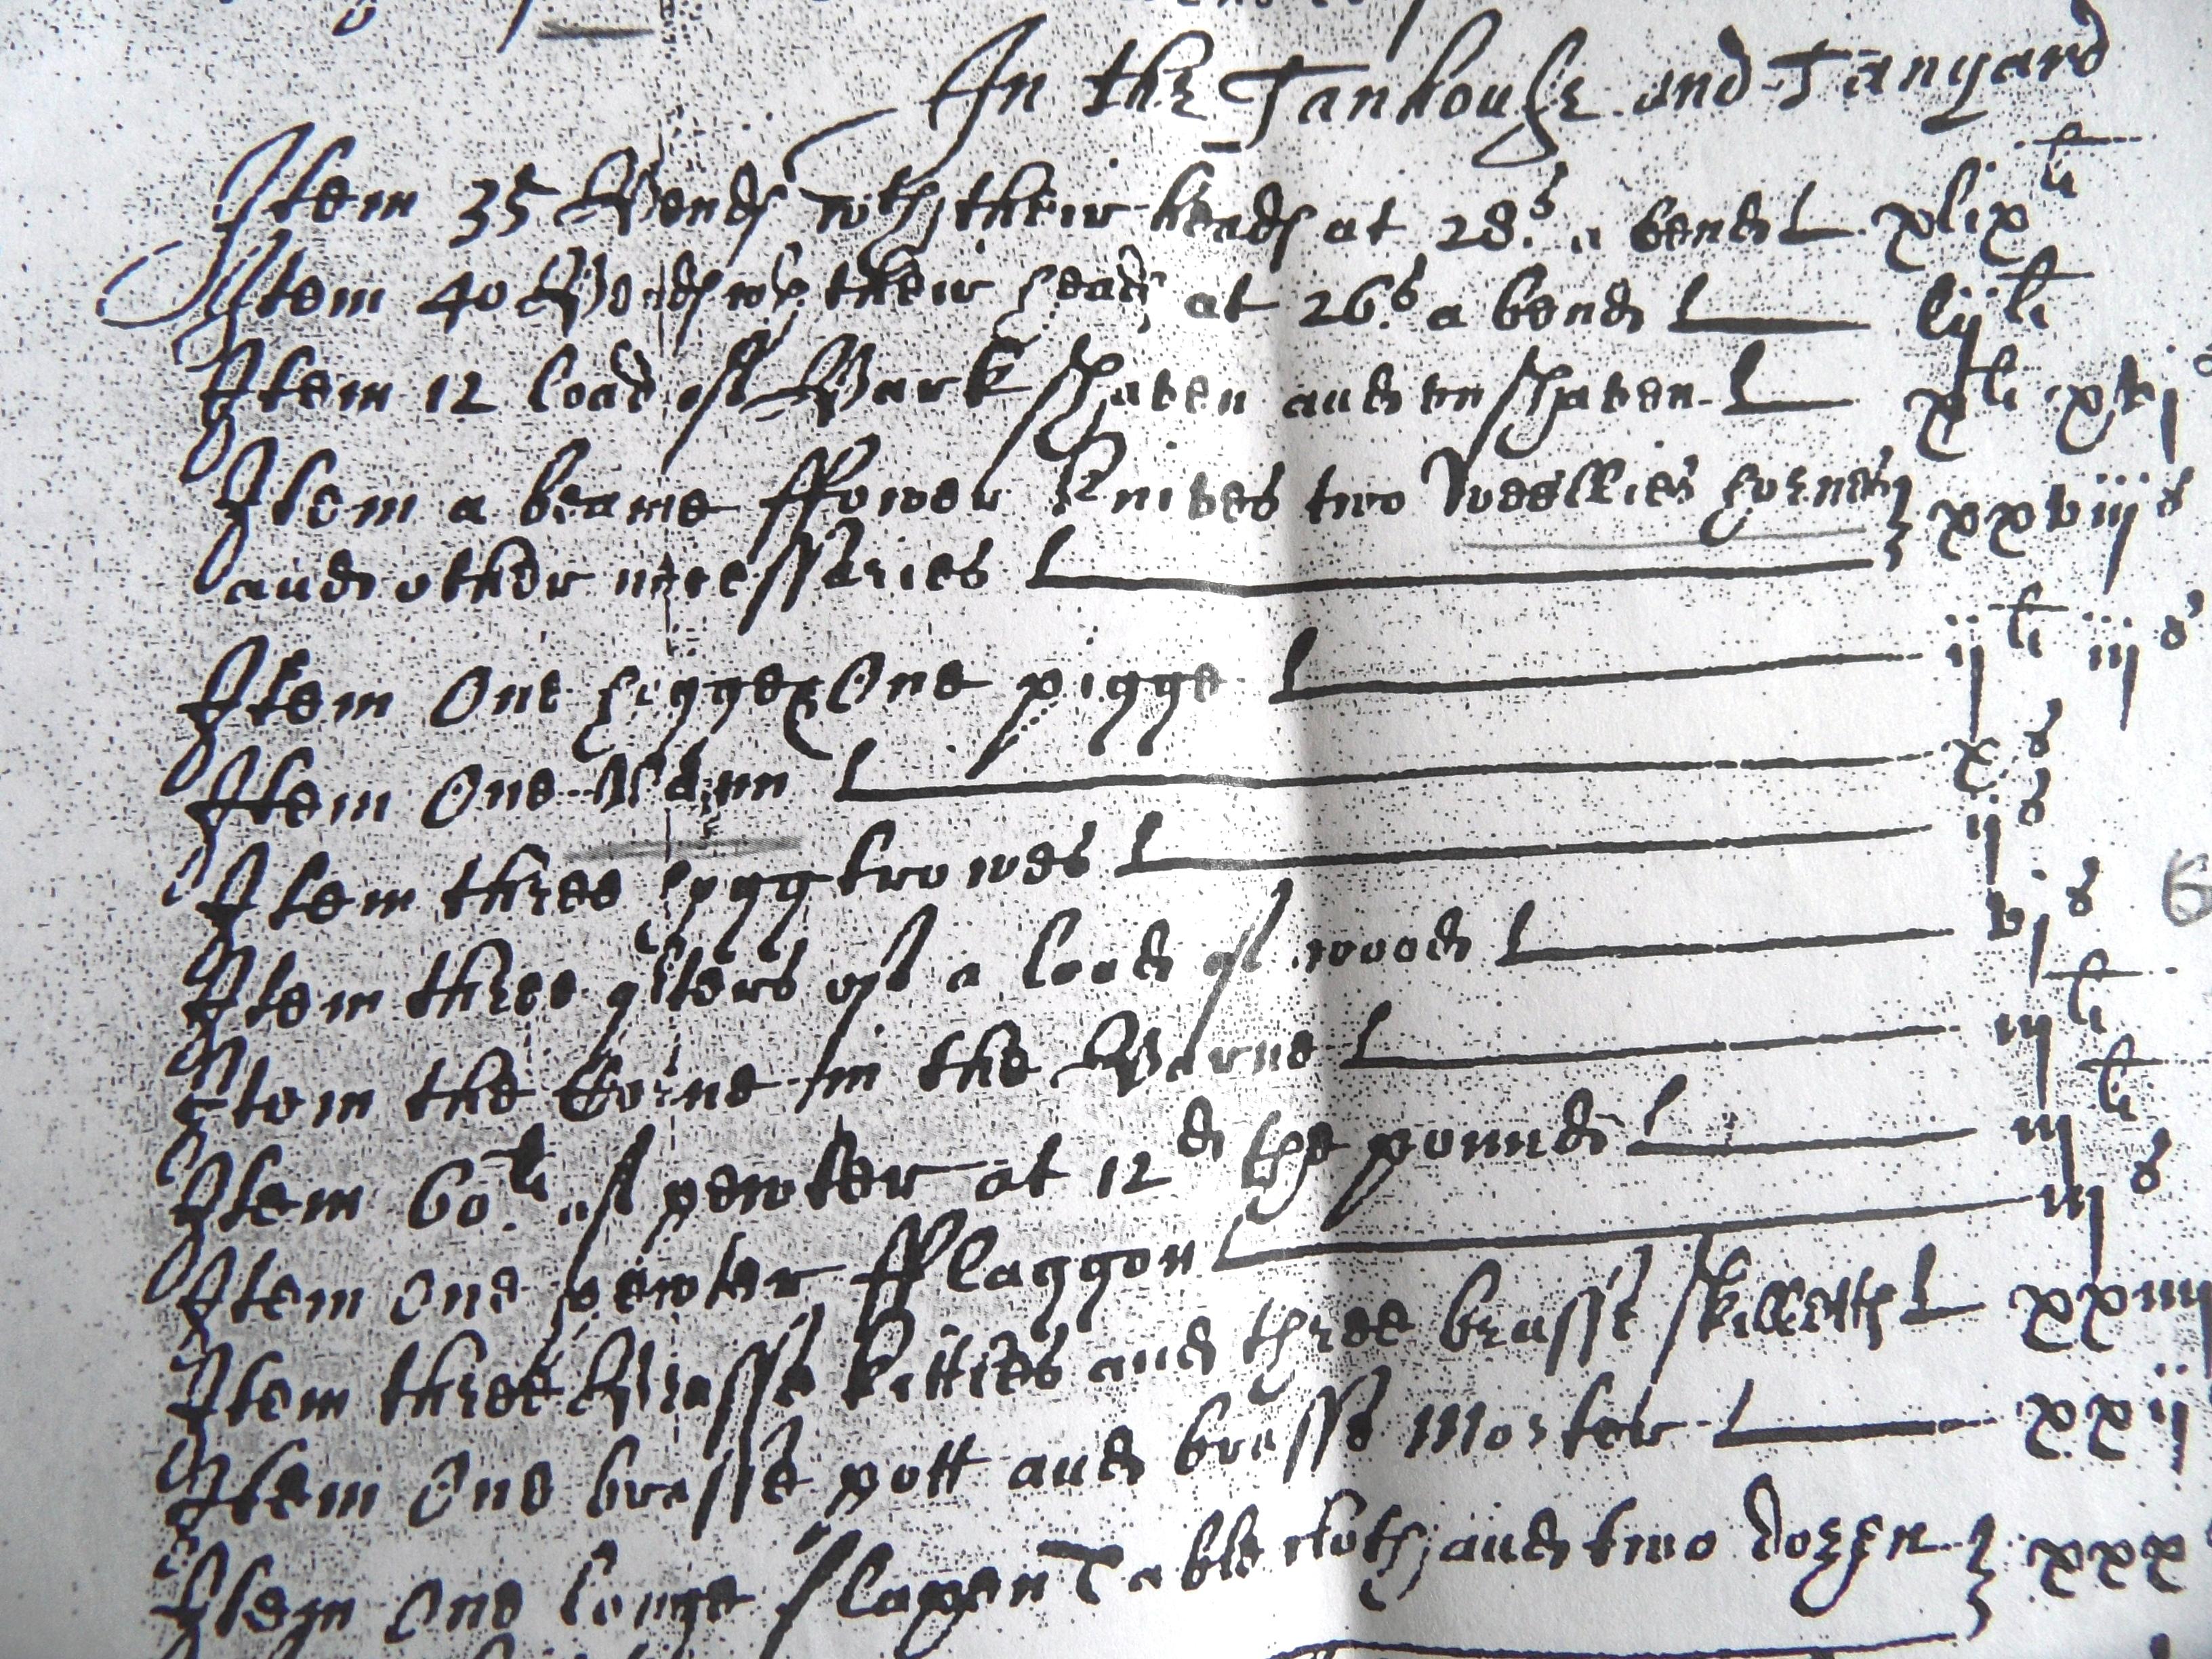 In the Tanhouse and Tanyard
Item 35 Bends wth their heads at 28s. a bend xlix li
Item 40 Bends wth their heads at 26s. a bend lij li
Item 12 load of Bark shaven and vnshaven x li xvj s
Item a beame ffower knives two hornes xxviij s
and other necessaries
Item One hogge & One pigge ij li iij s
Item One x s
Item three hogg trowes ij s
Item three qters of a load of wood vj s
Item the Corne in the Barne iij li
Item 60 li of pewter at 12d the pound iij li
Item One pewter fflaggon iij s
Item three Brasse kittles and three brasse skilletts
Item One brasse pott and brasse Morter xxij
Item One longe flaxen Table cloth and two dozen xxx